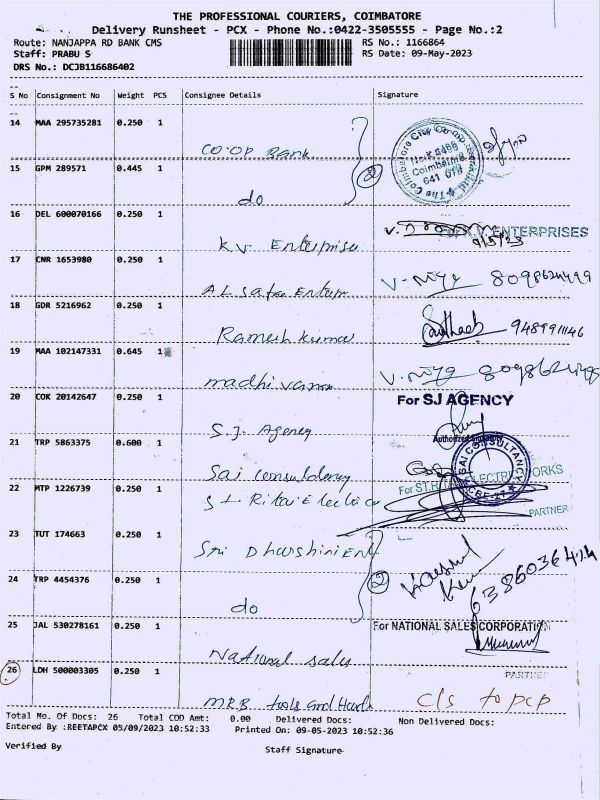 THE PROFESSIONAL COURIERS, COIMBATORE
Delivery Runsheet - PCX - Phone No.:0422-3505555 - Page No.:2
Route: NANJAPPA RD BANK CMS
RS No.: 1166864
Staff: PRABU S
RS Date: 09-May-2023
DRS No.: DCJB116686402
S No Consignment No Weight PCS Consignee Details Signature
14 MAA 295735281 0.250 1
CO-OP Bank
15 GPM 289571 0.445 1
do
2
641 018
16 DEL 600070166 0.250 1
KV Enterprises
ENTERPRISES
9/5/23
17 CNR 1653980 0.250 1
AL Safa Enterpr
8098624499
18 GDR 5216962 0.250 1
Ramesh kumar
9489911146
19 MAA 102147331 0.645 1
madhivanan
20 COK 20142647 0.250 1
S.J. Agency
For SJ AGENCY
Authorized
21 TRP 5863375 0.600 1
Sai consultancy
SAI CONSULTANCY
22 MTP 1226739 0.250 1
St Rita Electrical
For ST.R ELECTRIC WORKS
PARTNER
23 TUT 174663 0.250 1
Sri Dharshini Ent
24 TRP 4454376 0.250 1
do
2
25 JAL 530278161 0.250 1
National sales
For NATIONAL SALES CORPORATION
PARTNER
26 LDH 500003305 0.250 1
MRB tools and Hard
cls to pcp
Total No. Of Docs: 26 Total COD Amt: 0.00 Delivered Docs: Non Delivered Docs:
Entered By :REETAPCX 05/09/2023 10:52:33 Printed On: 09-05-2023 10:52:36
Verified By
Staff Signature